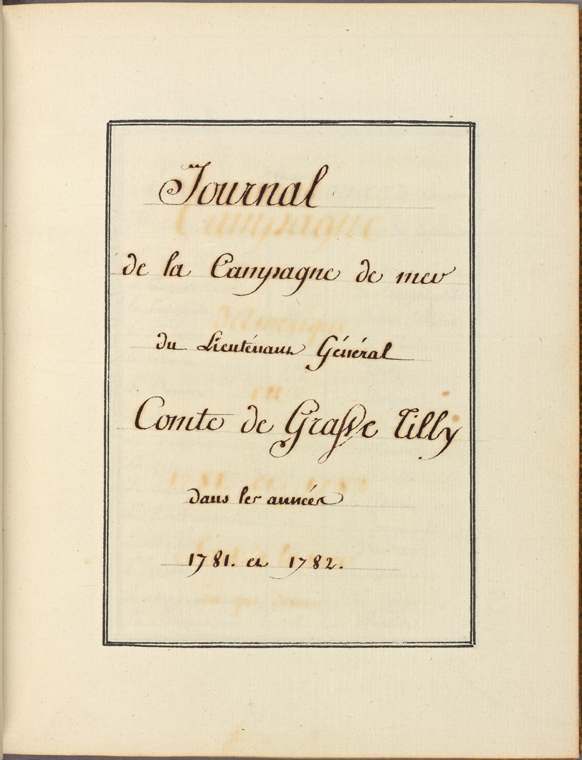 Journal
de la Campagne de mer
du Lieutenant Général
Comte de Grasse Tilly
dans les années
1781. et 1782.